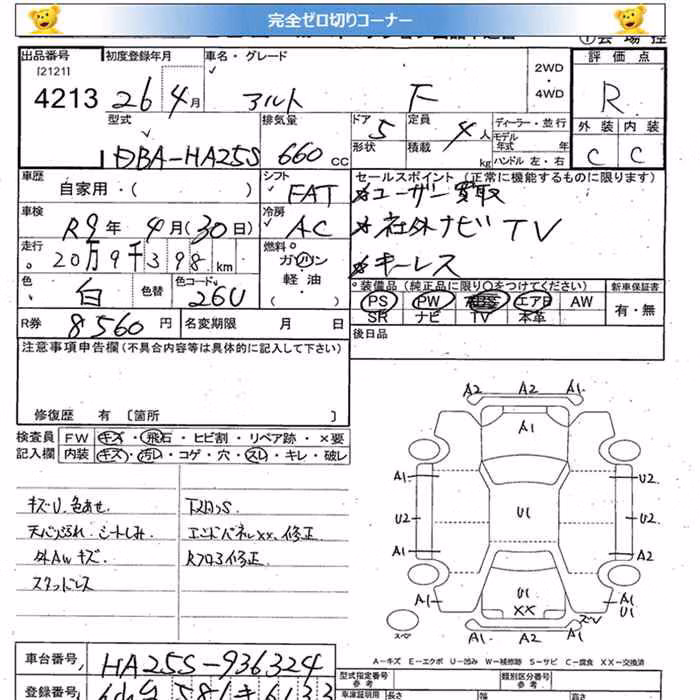 完全ゼロ切りコーナー
出品番号 初度登録年月 車名・グレード 2WD・4WD 評価点
[2121]
4213 26年4月 アルト F R
型式 排気量 ドア 5 定員 4人 ディーラー・並行 外装 内装
DBA-HA25S 660cc 形状 積載 kg モデル年式 年 ハンドル 左・右 C C
車歴 シフト セールスポイント (正常に機能するものに限ります)
自家用・( ) FAT ユーザー買取
車検 冷房
R9年 4月(30日) AC 社外ナビ TV
走行 燃料
20万9千398km ガソリン キーレス
軽油
( )
色 色替 色コード 装備品(純正品に限り○をつけてください) 新車保証書
白 26U PS PW ABS エアB AW 有・無
SR ナビ TV 本革
R券 8560円 名変期限 月 日 後日品
注意事項申告欄(不具合内容等は具体的に記入して下さい)
修復歴 有 〔箇所 〕
検査員 FW キズ・飛石・ヒビ割・リペア跡・×要
記入欄 内装 キズ・汚レ・コゲ・穴・スレ・キレ・破レ
キズU.色あせ.
シートしみ エンドパネルxx.修正
外AWキズ
スタッドレス
A2 A2 A1
A1
A1 U2
U2 U1 U2
A1 A2
U1
XX
A1 A1
U1
A1 A2 A2
スペア
A-キズ E-エクボ U-凹み W-補修跡 S-サビ C-腐食 XX-交換済
車台番号 HA25S-936324
登録番号
型式指定番号 類別区分番号
車庫証明用 長さ 幅 高さ